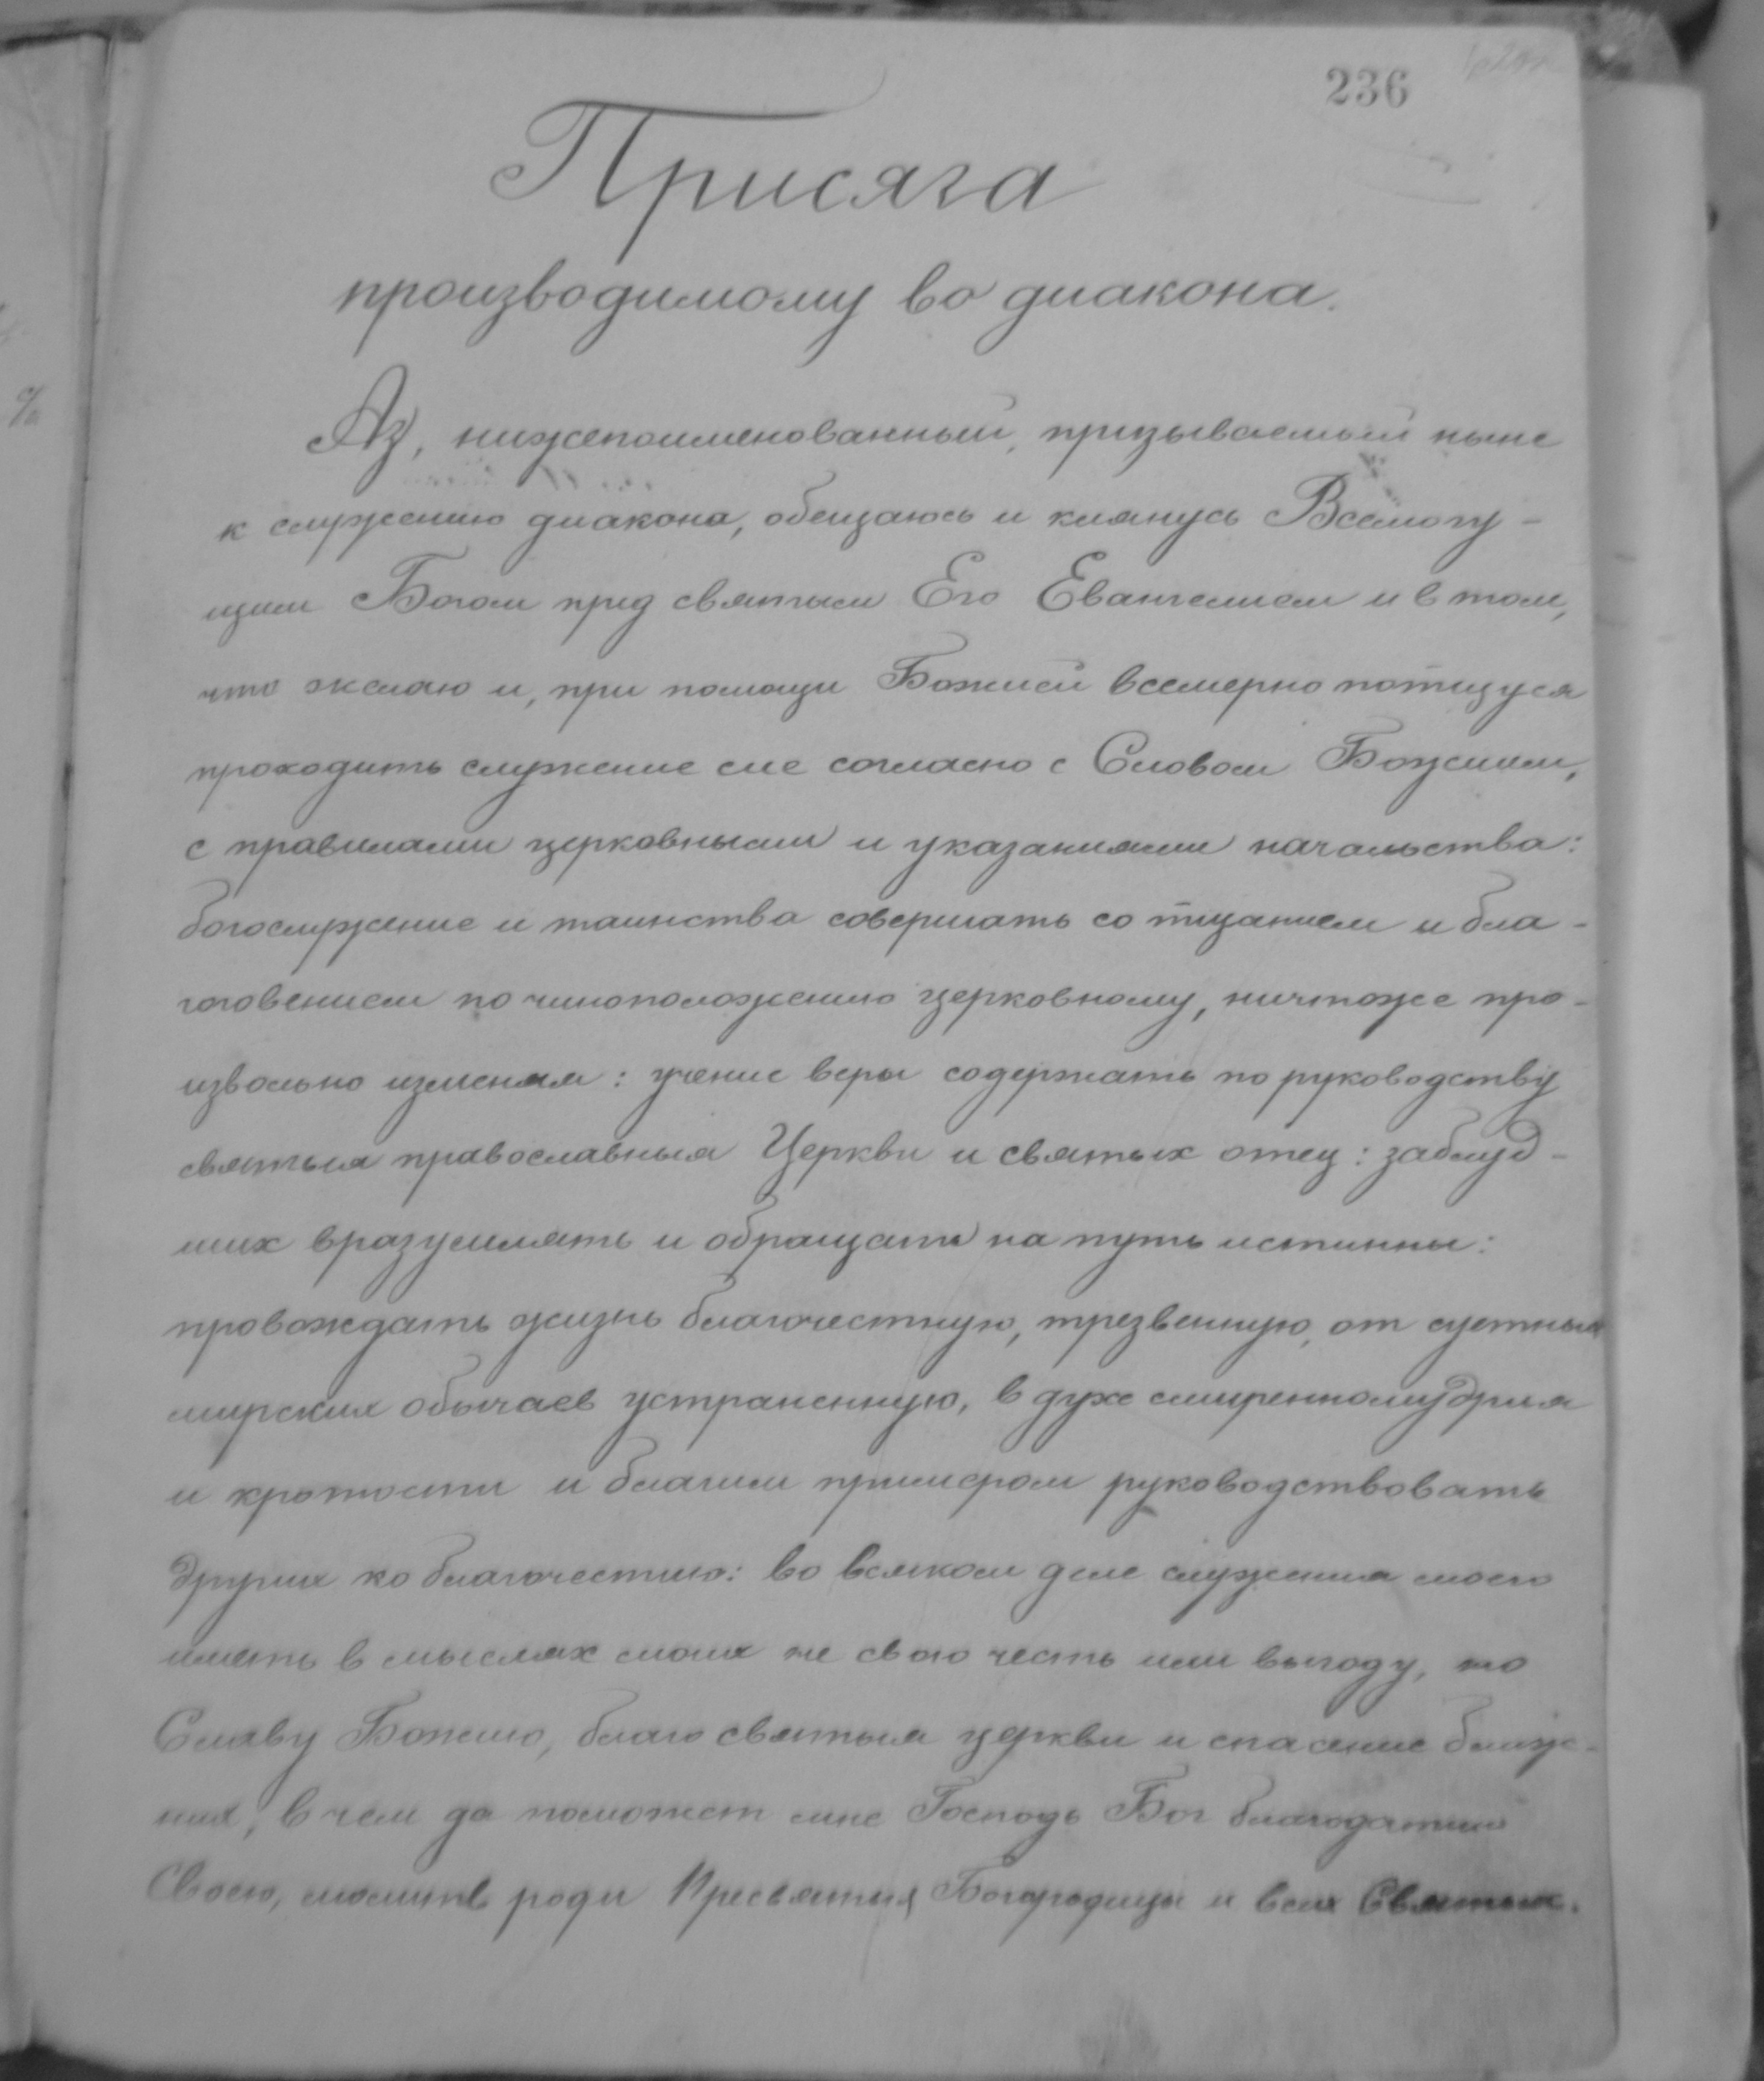 236
Присяга
производимому во диакона.
Аз, нижепоименованный, призываемый ныне
к служению диакона, обещаюсь и клянусь Всемогу-
щим Богом пред святым Его Евангелием и в том,
что желаю и, при помощи Божией всемерно потщуся
проходить служение сие согласно с Словом Божиим,
с правилами церковными и указаниями начальства:
богослужение и таинства совершать со тщанием и бла-
гоговением по чиноположению церковному, ничтоже про-
извольно изменяя: учение веры содержать по руководству
святыя православныя Церкви и святых отец: заблуд-
ших вразумлять и обращать на путь истинны:
провождать жизнь благочестную, трезвенную, от суетных
мирских обычаев устраненную, в духе смиренномудрия
и кротости и благим примером руководствовать
других ко благочестию: во всяком деле служения моего
иметь в мыслях моих не свою честь или выгоду, но
Славу Божию, благо святыя церкви и спасение ближ-
них, в чем да поможет мне Господь Бог благодатию
Своею, молитв ради Пресвятыя Богородицы и всех Святых.